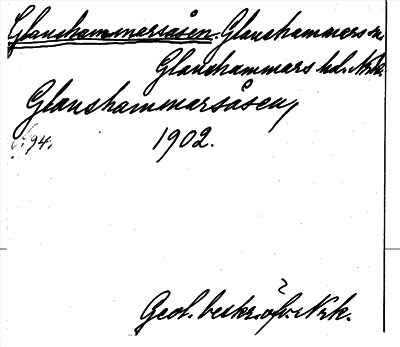 Glanshammarsåsen. Glanshammars sn.
Glanshammars hd. Nrk.
Glanshammarsåsen,
s. 94. 1902.
Geol. beskr. öfv. Nrk.